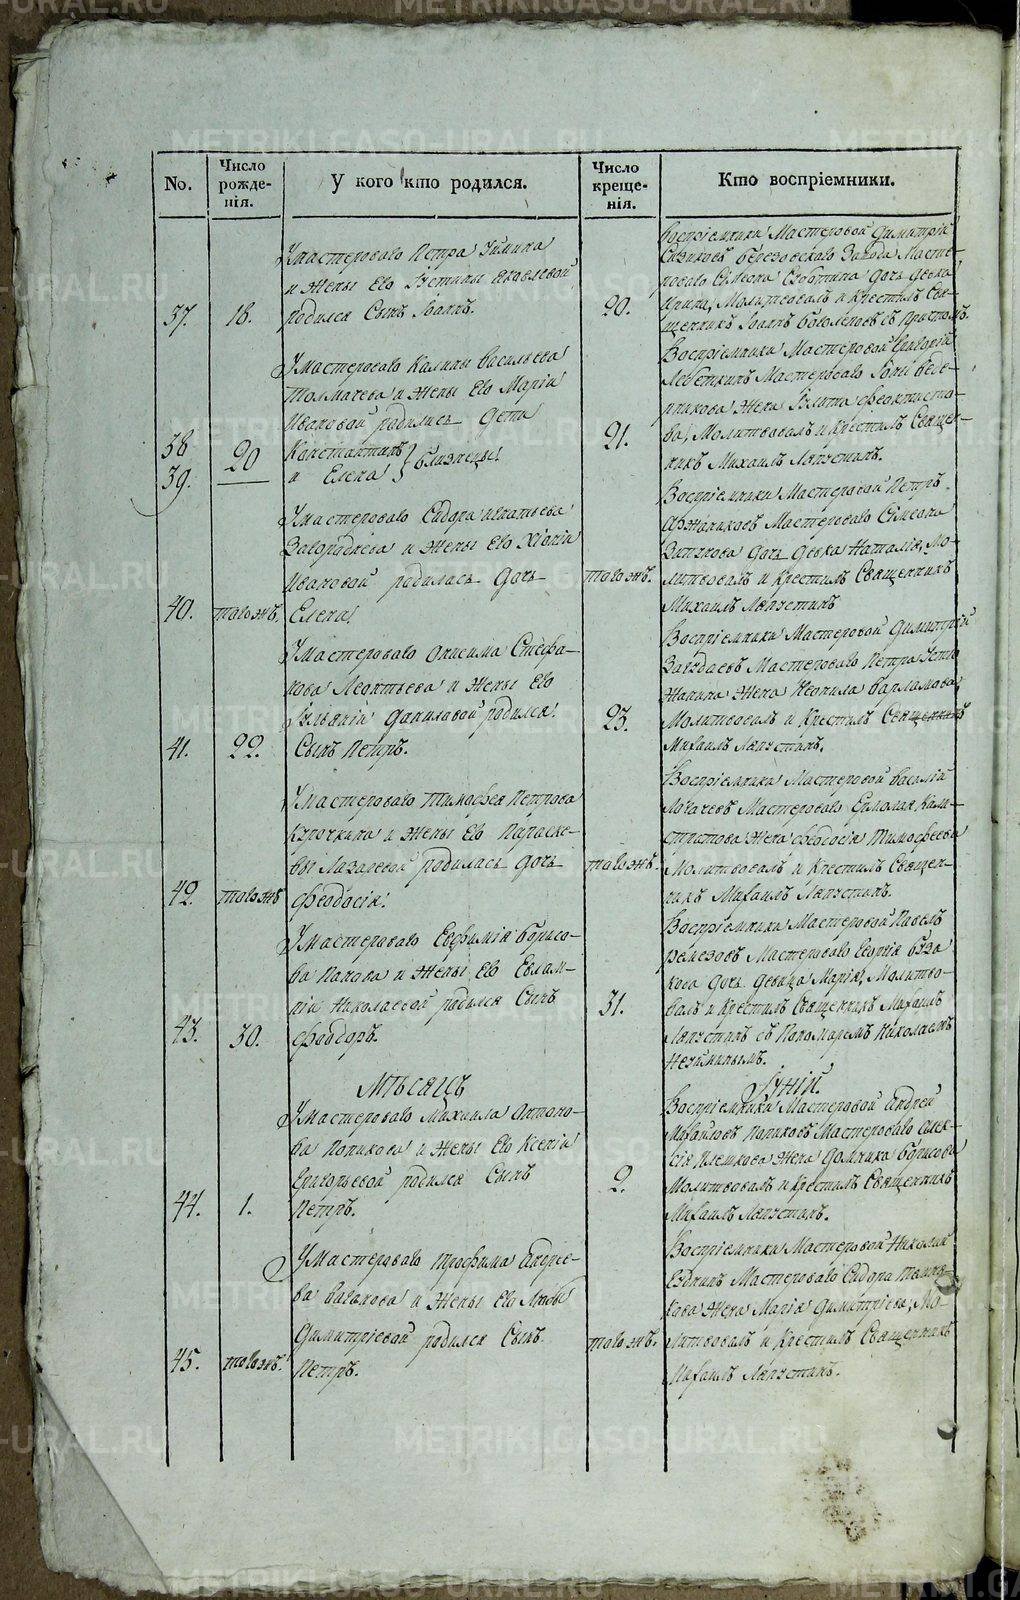 No.
Число рожде-нія.
У кого кто родился.
Число креще-нія.
Кто воспріемники.
37.
18.
У мастероваго Петра Зимина
и жены Его Іустины Яковлевой
родился Сынъ Іоаннъ.
20.
Воспріемники Мастеровой Димитрій
Березовскаго Завода Масте-
роваго Симеона дочь девка
Ирина, Молитвовалъ и Крестилъ Свя-
щенникъ Іоаннъ Боголеповъ съ
38
39.
20
У мастероваго Калины Васильева
Толмачева и жены Его Маріи
Ивановой родились дети
Константинъ
и Елена } близнецы
21.
Воспріемники Мастеровой Григорій
Лебеткинъ Мастероваго Іоны
жена Феоктисто-
ва, Молитвовалъ и Крестилъ Священ-
никъ Михаилъ Ляпустинъ.
40.
тогожъ.
У мастероваго Сидора Игнатьева
и жены Его Хіоніи
Ивановой родилась дочь
Елена
тогожъ.
Воспріемники Мастеровой Петръ
Мастероваго Симеона
дочь девка Наталія, Мо-
литвовалъ и Крестилъ Священникъ
Михаилъ Ляпустинъ
41.
22.
У мастероваго Онисима Стефа-
нова Леонтьева и жены Его
Іуліаніи Даниловой родился
Сынъ Петръ.
23.
Воспріемники Мастеровой Димитрій
Мастероваго Петра
жена Неонила Варламова,
Молитвовалъ и Крестилъ Священникъ
Михаилъ Ляпустинъ.
42.
тогожъ
У мастероваго Тимофея Петрова
Курочкина и жены Его Параске-
вы Лазаревой родилась дочь
Феодосія
тогожъ.
Воспріемники Мастеровой Василій
Логачевъ Мастероваго Ермолая
жена Феодосія Тимофеева
Молитвовалъ и Крестилъ Священ-
никъ Михаилъ Ляпустинъ.
43.
30.
У мастероваго Евфимія Борисо-
ва Панова и жены Его Евлам-
піи Николаевой родился Сынъ
Феодоръ.
31.
Воспріемники Мастеровой Павелъ
Ремезовъ Мастероваго Георгія
дочь девица Марія, Молитво-
валъ и Крестилъ Священникъ Михаилъ
Ляпустинъ съ Пономаремъ Николаемъ
Мѣсяцъ
Іуній.
44.
1.
У мастероваго Михаила Антоно-
ва и жены Его Ксеніи
Григорьевой родился Сынъ
Петръ.
2.
Воспріемники Мастеровой Андрей
Михайловъ Мастероваго Алек-
сія жена Домника Борисова
Молитвовалъ и Крестилъ Священникъ
Михаилъ Ляпустинъ.
45.
тогожъ.
У Мастероваго Трофима Андрее-
ва и жены Его Любви
Димитріевой родился Сынъ
Петръ.
тогожъ.
Воспріемники Мастеровой Николай
Мастероваго Сидора
жена Марія Димитріева, Мо-
литвовалъ и Крестилъ Священникъ
Михаилъ Ляпустинъ.
METRIKI.GASO-URAL.RU